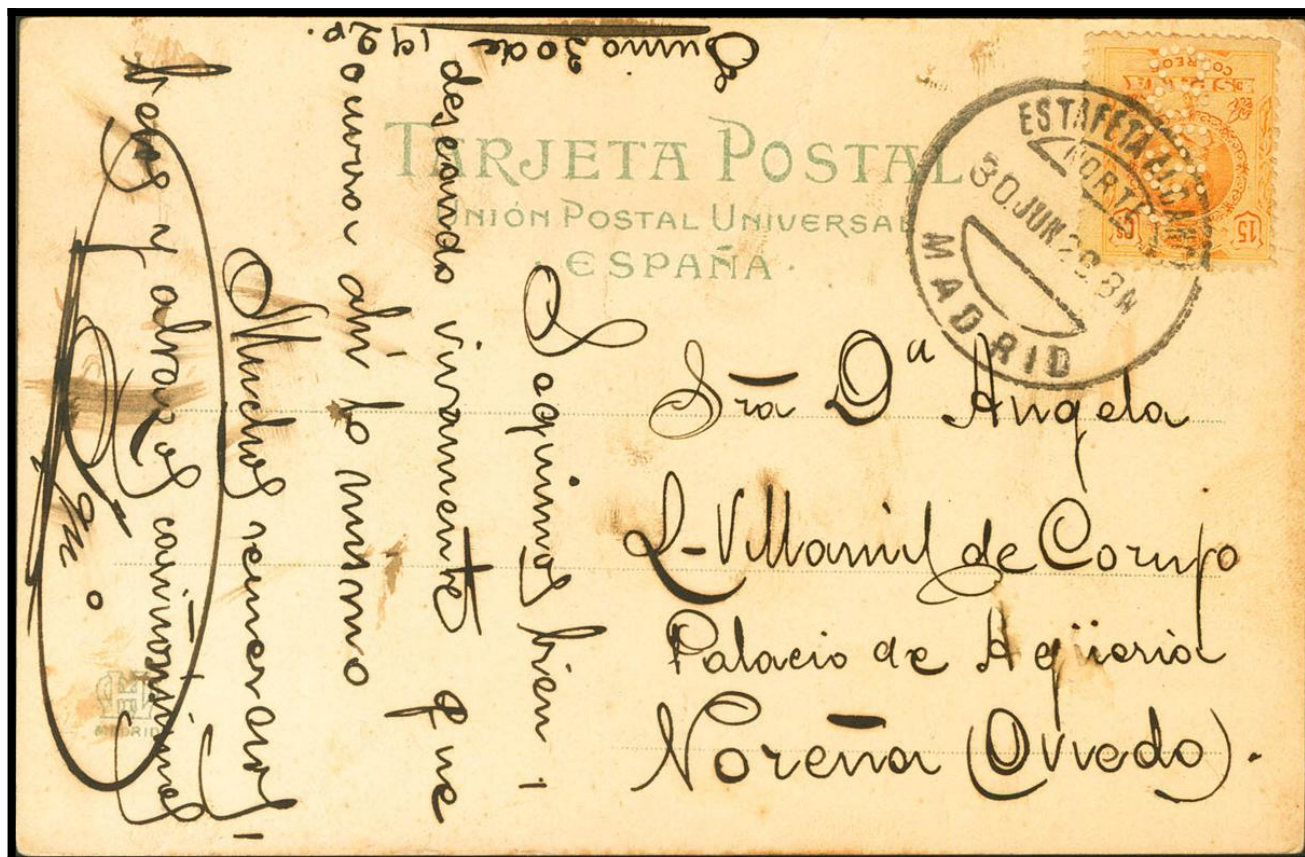 TARJETA POSTAL
UNIÓN POSTAL UNIVERSAL
· ESPAÑA ·
CORREOS
15 Cs
ESTAFETA ALCANCE
NORTE
30 JUN 20. 8N
MADRID
Sra Da Angela
L-Villamil de Cornjo
Palacio de Agüeria
Noreña (Oviedo).
Junio 30 de
1920.
Seguimos bien,
deseando vivamente que
ocurra ahí lo mismo
Muchos recuerdos,
besos y abrazos cariñosísimos
MADRID